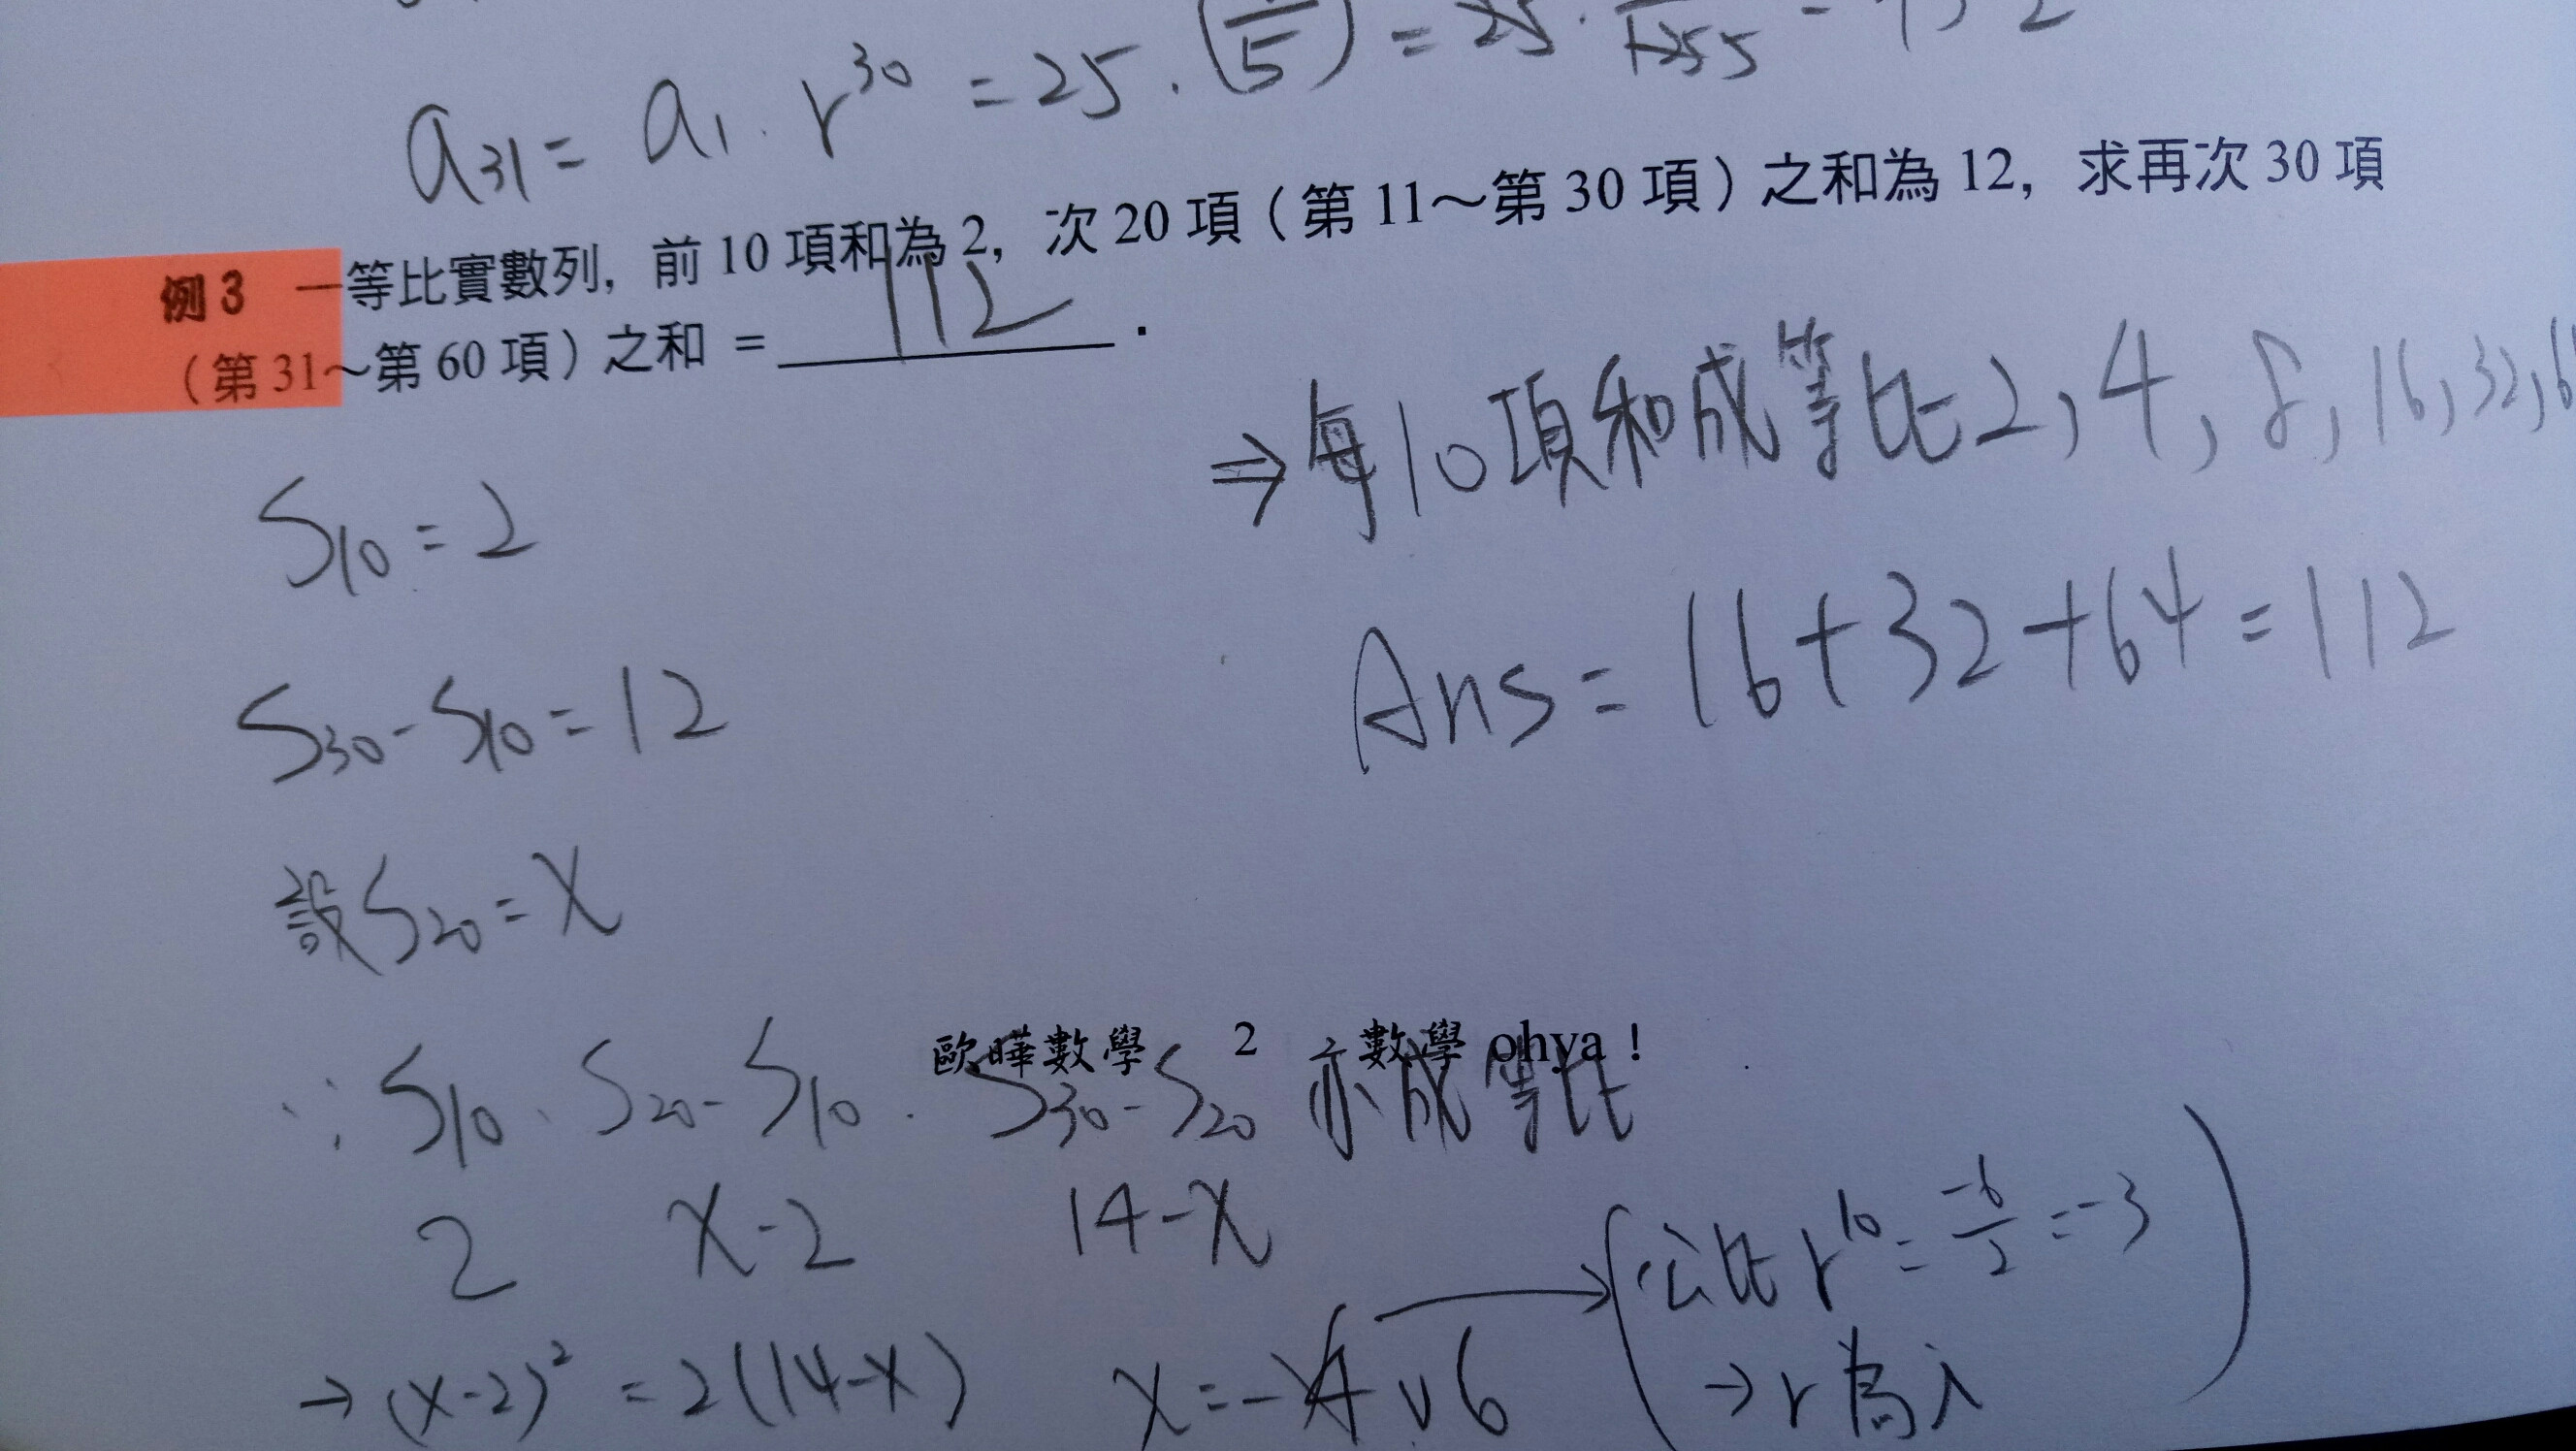 a₃₁ = a₁ · r³⁰ = 25 ·
例 3 一等比實數列，前 10 項和為 2，次 20 項（第 11～第 30 項）之和為 12，求再次 30 項
（第 31～第 60 項）之和 = 112 .
⇒ 每10項和成等比 2, 4, 8, 16, 32, 6
S₁₀ = 2
Ans = 16+32+64 = 112
S₃₀ - S₁₀ = 12
設 S₂₀ = x
歐曄數學 2 數學 ohya！
∵ S₁₀、S₂₀-S₁₀、S₃₀-S₂₀ 亦成等比
2 x-2 14-x
→ (x-2)² = 2(14-x) x = -4 ∨ 6
(公比 r¹⁰ = -6/2 = -3
→ r 為 )